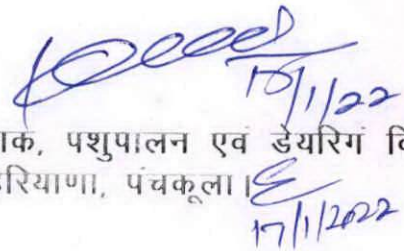 17/1/22
ाक, पशुपालन एवं डेयरिंग वि
हरियाणा, पंचकूला।
17/1/2022